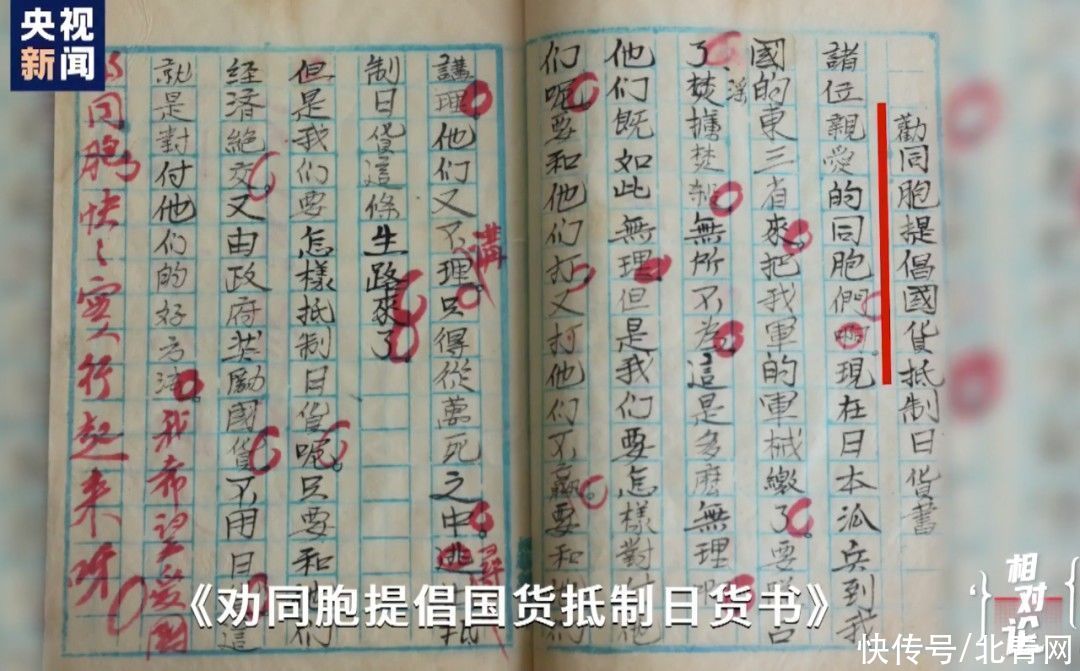 央视新闻
勸同胞提倡國貨抵制日貨書
諸位親愛的同胞們啊現在日本派兵到我
國的東三省來。把我軍的軍械繳了。要
了、焚擄焚殺。無所不為。這是多麼無理呢。
淫
他们既如此無理。但是我们要怎樣對付他
们呢。要和他们打、又打他们不贏。要和他们
講理。他们又不理。只得從萬死之中。抵
講
尋
制日貨這條生路來了。
但是我们要怎樣抵制日貨呢。只要和他们
経済絕交。又由政府奖励國貨。不用日這
就是對付他们的好方法。我希望爱国
的同胞快〻實行起來呀。
《劝同胞提倡国货抵制日货书》
相对论
快传号/北青网